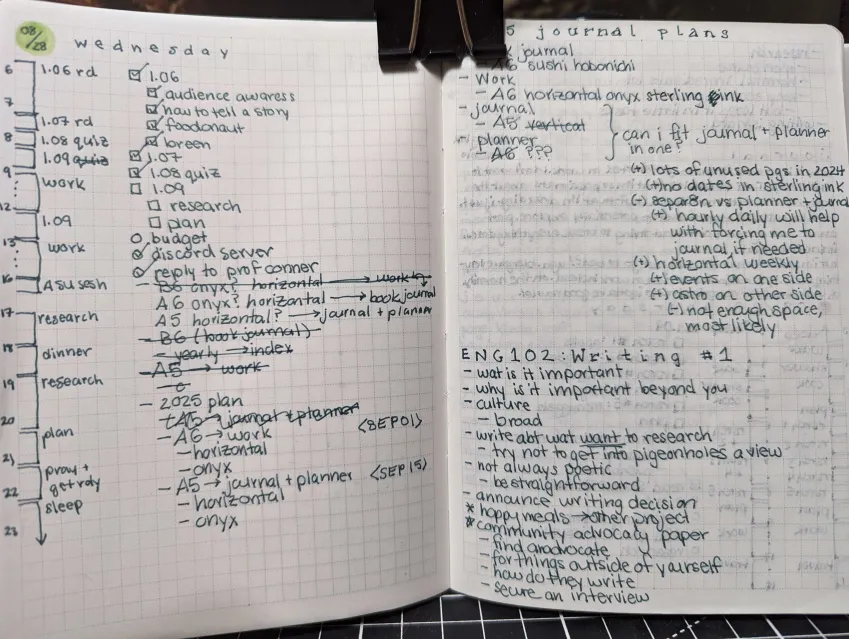 08/28
wednesday
6
1.06 rd
7
1.07 rd
8
1.08 quiz
1.09 quiz
9
work
12
1.09
13
work
16
ASU sesh
17
research
18
dinner
19
research
20
plan
21
pray +
get rdy
22
sleep
23
1.06
audience awaress
how to tell a story
foodonaut
loreen
1.07
1.08 quiz
1.09
research
plan
budget
discord server
reply to prof conner
- B6 onyx? horizontal → work
A6 onyx? horizontal → book journal
A5 horizontal? → journal + planner
- B6 (book journal)
- yearly → index
- A5 → work
- 2025 plan
- A5 → journal + planner
- A6 → work <SEP01>
- horizontal
- onyx
- A5 → journal + planner <SEP15>
- horizontal
- onyx
5 journal plans
k journal
- A6 sushi hobonichi
- work
- A6 horizontal onyx sterling ink
- journal
- A5 vertical
- planner
- A6 ???
can i fit journal + planner
in one?
(+) lots of unused pgs in 2024
(+) no dates in sterling ink
(-) separ8n vs planner + journal
(+) hourly daily will help
with forcing me to
journal if needed
(+) horizontal weekly
(+) events on one side
(+) astro on other side
(-) not enough space,
most likely
ENG102: Writing #1
- wat is it important
- why is it important beyond you
- culture
- broad
- write abt wat want to research
- try not to get into pigeonholes a view
- not always poetic
- be straightforward
- announce writing decision
* happy meals → other project
* community advocacy paper
- find an advocate
- for things outside of yourself
- how do they write
- secure an interview